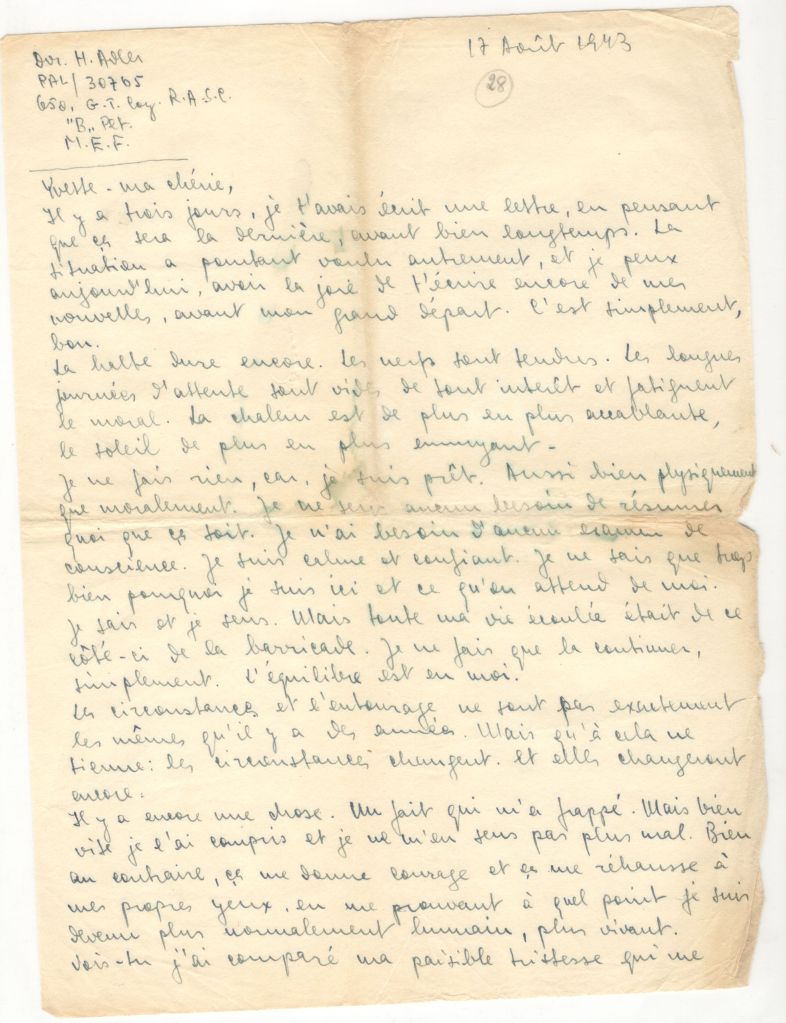 Dvr. H. Adler
17 Août 1943
PAL/30765
28
650, G.T. Coy. R.A.S.C.
"B" Plt.
M.E.F.
Yvette - ma chérie,
Il y a trois jours, je t'avais écrit une lettre, en pensant
que ça sera la dernière, avant bien longtemps. La
situation a pourtant voulu autrement, et je peux
aujourd'hui, avoir la joie de t'écrire encore de mes
nouvelles, avant mon grand départ. C'est simplement,
bon.
La halte dure encore. Les nerfs sont tendus. Les longues
journées d'attente sont vides de tout interêt et fatiguent
le moral. La chaleur est de plus en plus accablante,
le soleil de plus en plus ennuyant -
Je ne fais rien, car, je suis prêt. Aussi bien physiquement
que moralement. Je ne sens aucun besoin de résumer
quoi que ça soit. Je n'ai besoin d'aucun examen de
conscience. Je suis calme et confiant. Je ne sais que trop
bien pourquoi je suis ici et ce qu'on attend de moi.
Je sais et je sens. Mais toute ma vie écoulée était de ce
côté-ci de la barricade. Je ne fais que la continuer,
simplement. L'équilibre est en moi.
Les circonstances et l'entourage ne sont pas exactement
les mêmes qu'il y a des années. Mais qu'à cela ne
tienne: les circonstances changent. Et elles changeront
encore.
Il y a encore une chose. Un fait qui m'a frappé. Mais bien
vite je l'ai compris et je ne m'en sens pas plus mal. Bien
au contraire, ça me donne courage et ça me réhausse à
mes propres yeux, en me prouvant à quel point je suis
devenu plus normalement humain, plus vivant.
Vois-tu j'ai comparé ma paisible tristesse qui me